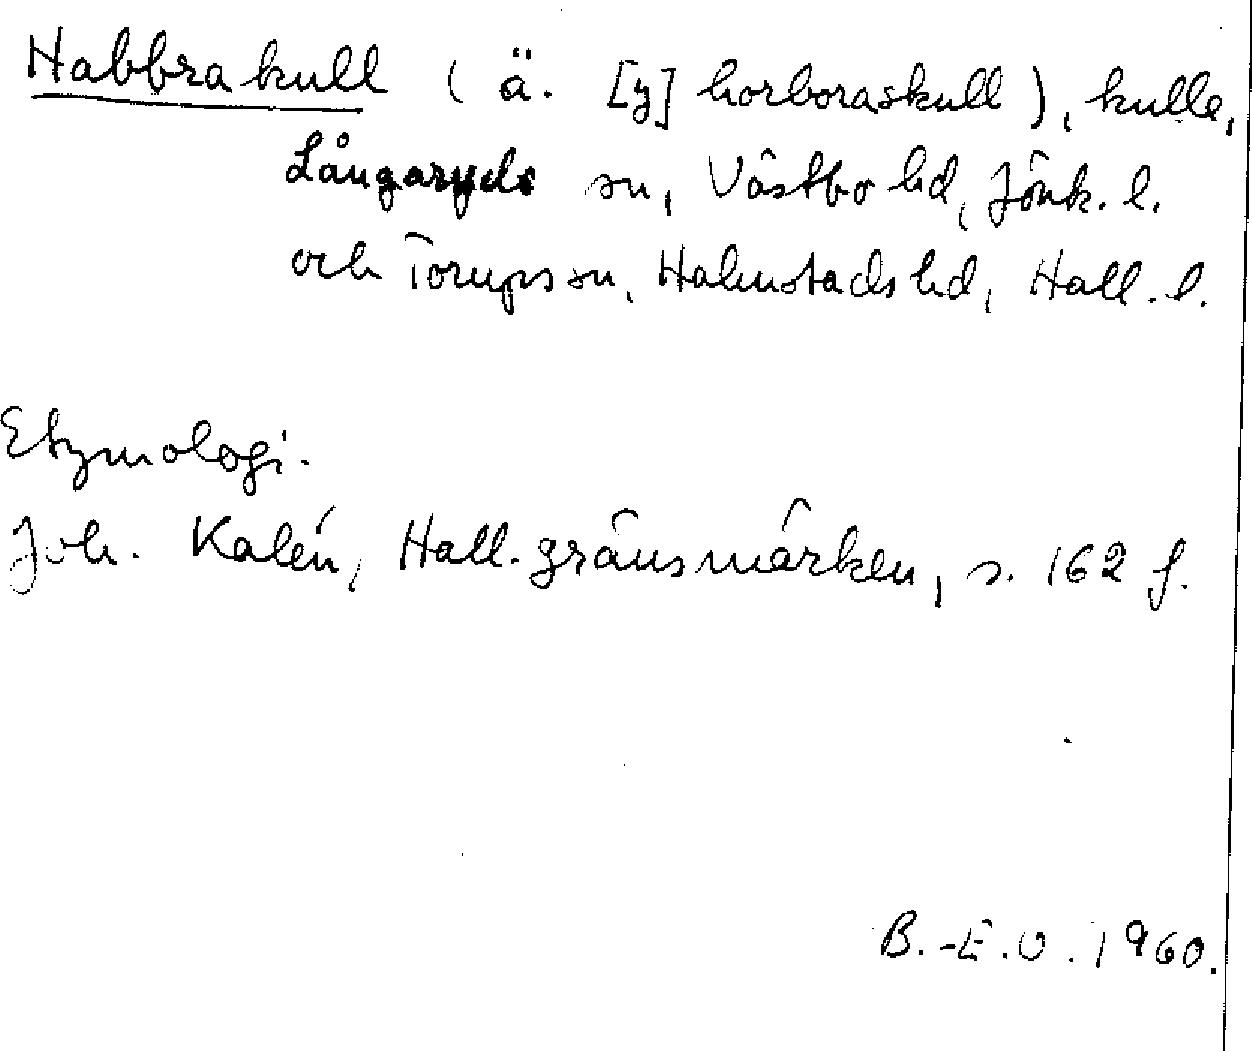 Habbrakull (ä. [y] horboraskull), kulle,
Långaryds sn, Västbo hd, Jönk. l.
och Torups sn, Halmstads hd, Hall. l.
Etymologi.
Joh. Kalén, Hall. gränsmärken, s. 162 f.
B.-E.O. 1960.